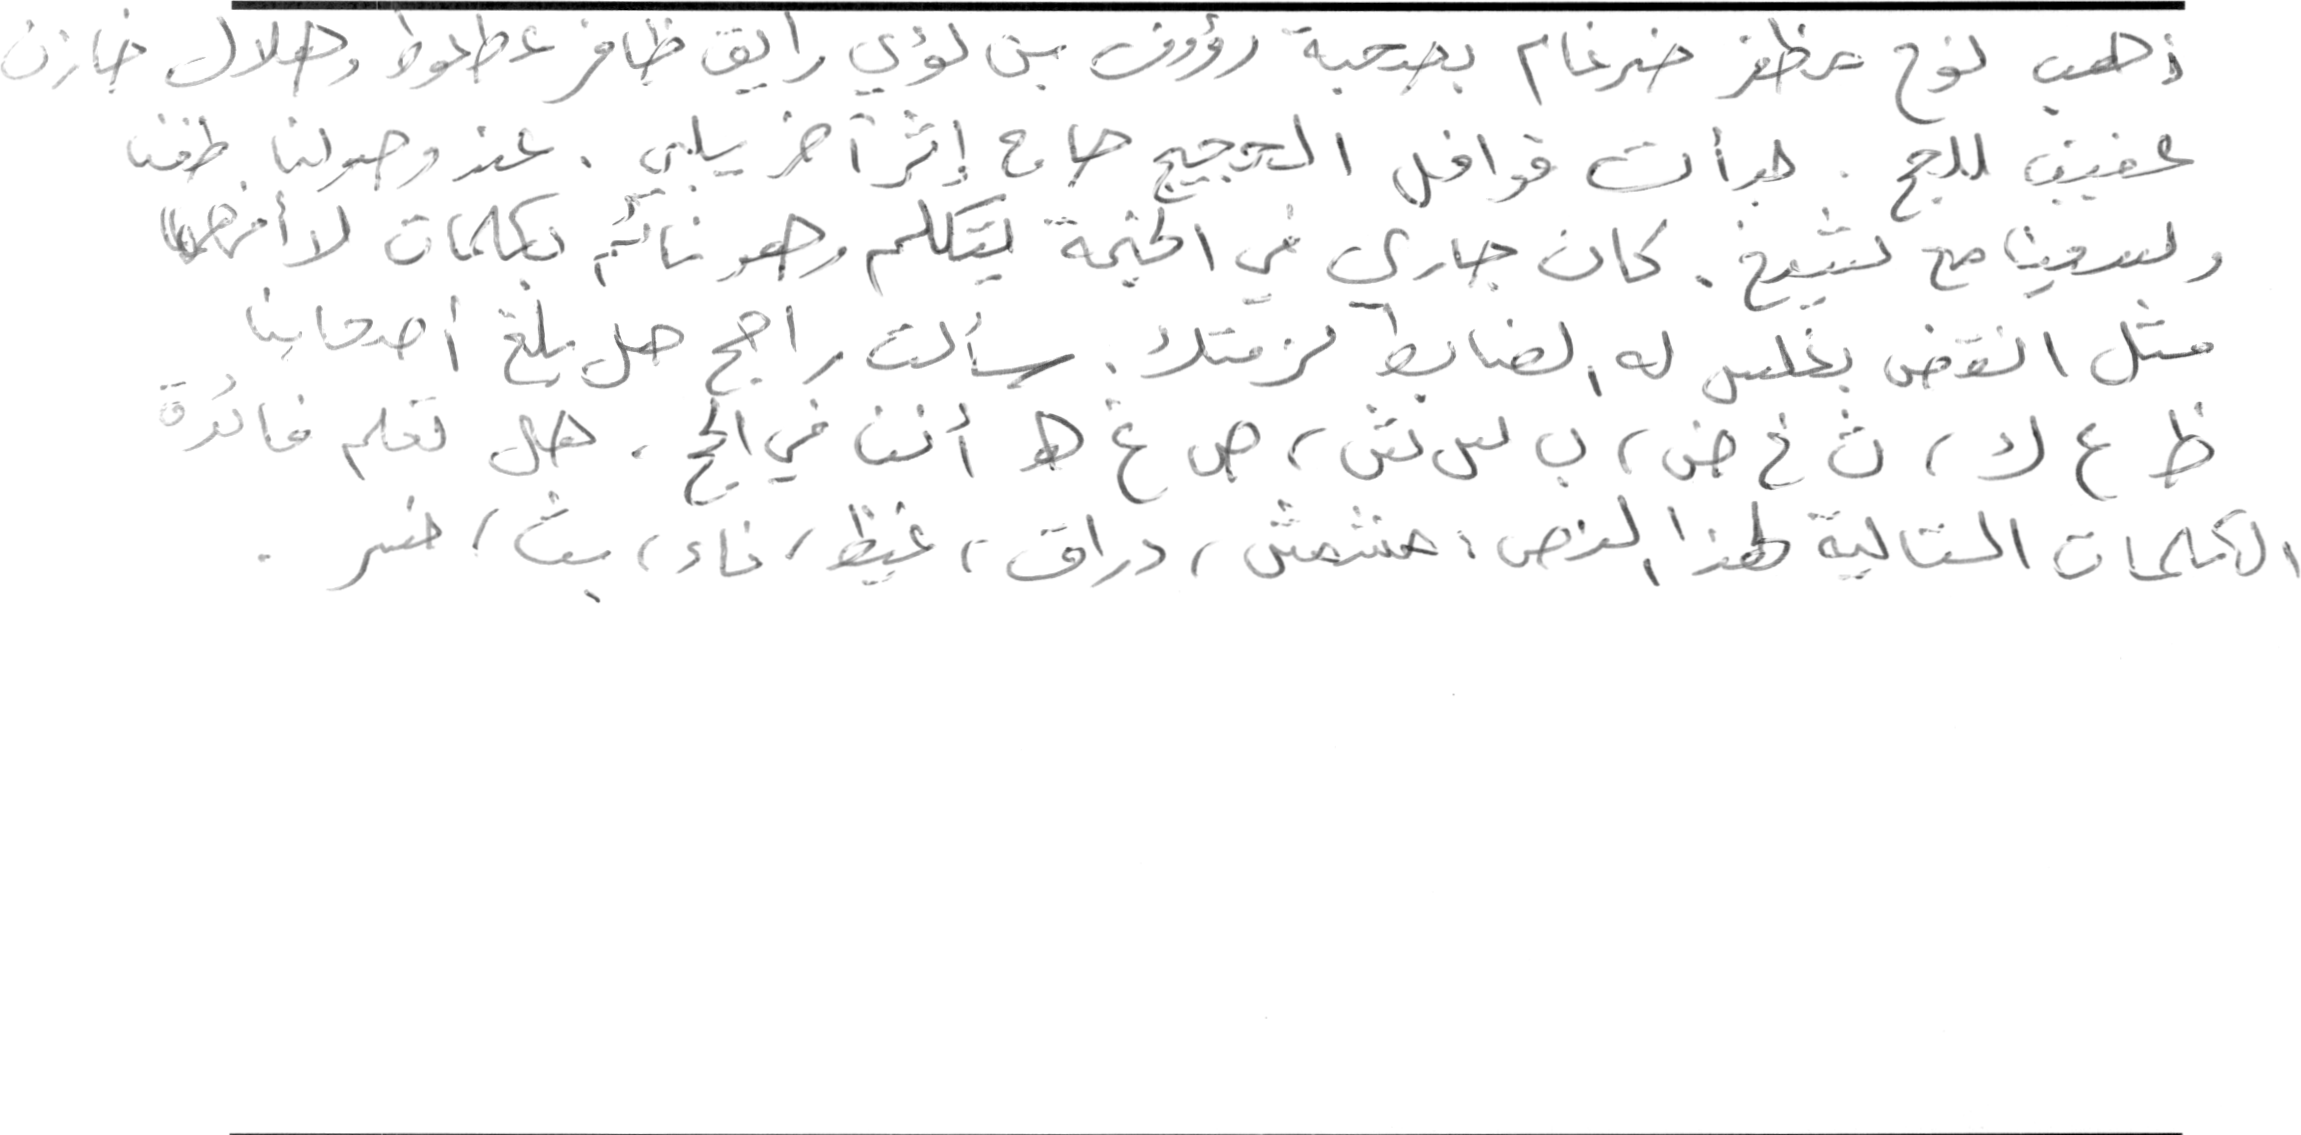 ذهب نوح مظفر ضرغام بصحبة رؤوف بن لؤي رايق ظافر عطعوط وهلال خازن
عفيف للحج . بدأت قوافل الحجيج حاج إثر آخر يلبي . عند وصولنا طفنا
وسعينا مع شيخ . كان جاري في الخيمة يتكلم وهو نائم بكلمات لا أفهمها
مثل انقض بغلس له الضابط لزمتك . سألت راجح هل بلغ أصحابنا
ظ ع ك ، ث خ ض ، ب س ش ، ص غ ط أننا في الحج . هل تعلم فائدة
الكلمات التالية لهذا النص : مشمش ، دراق ، غيظ ، فاء ، بث ، خس .